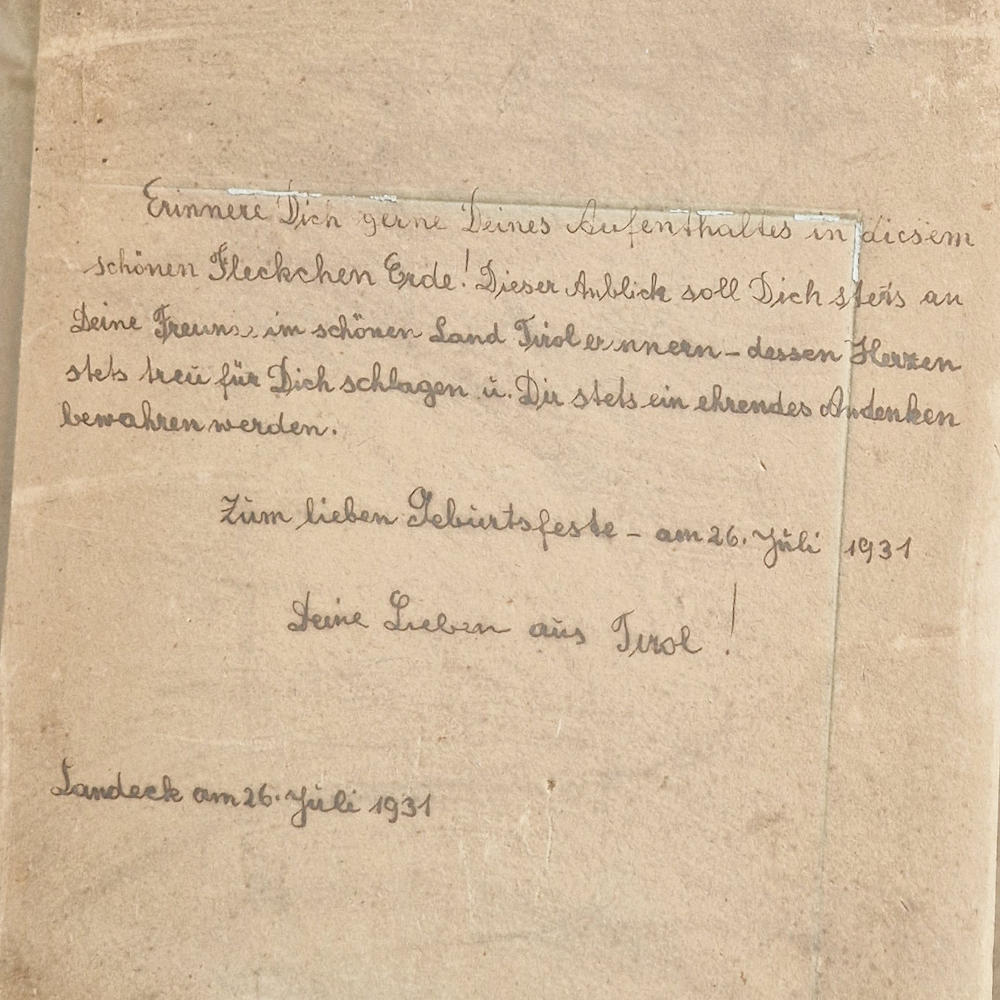 Erinnere Dich gerne Deines Aufenthaltes in diesem
schönen Fleckchen Erde! Dieser Anblick soll Dich stets an
Deine Freunde im schönen Land Tirol erinnern – dessen Herzen
stets treu für Dich schlagen u. Dir stets ein ehrendes Andenken
bewahren werden.
Zum lieben Geburtsfeste – am 26. Juli 1931
Deine Lieben aus Tirol!
Landeck am 26. Juli 1931